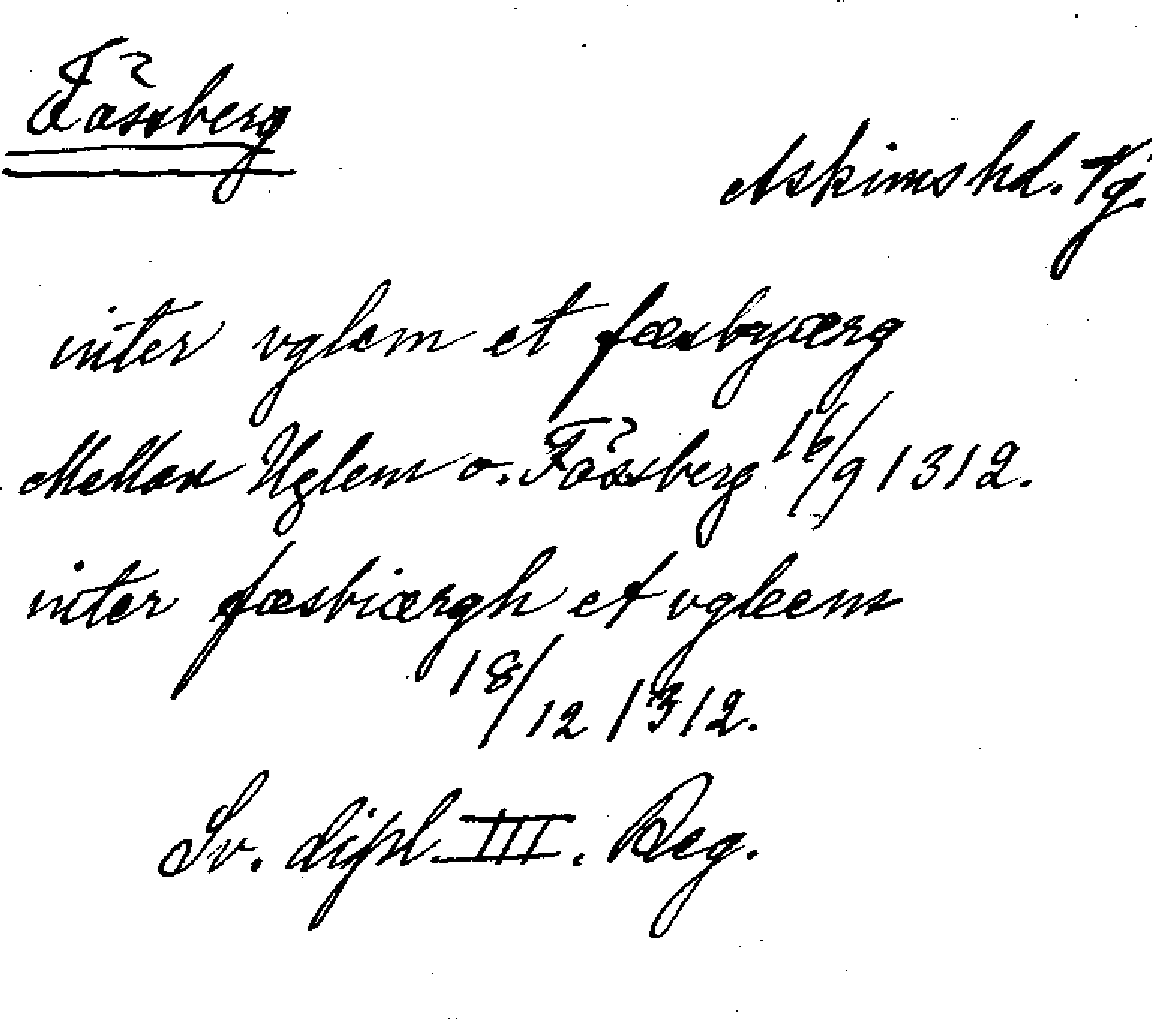 Fässberg
Askims hd. Vg.
inter vglem et fæsbyærg
Mellan Uglem o. Fässberg 16/9 1312.
inter fæsbiærgh et vgleem
18/12 1312.
Sv. dipl. III. Reg.